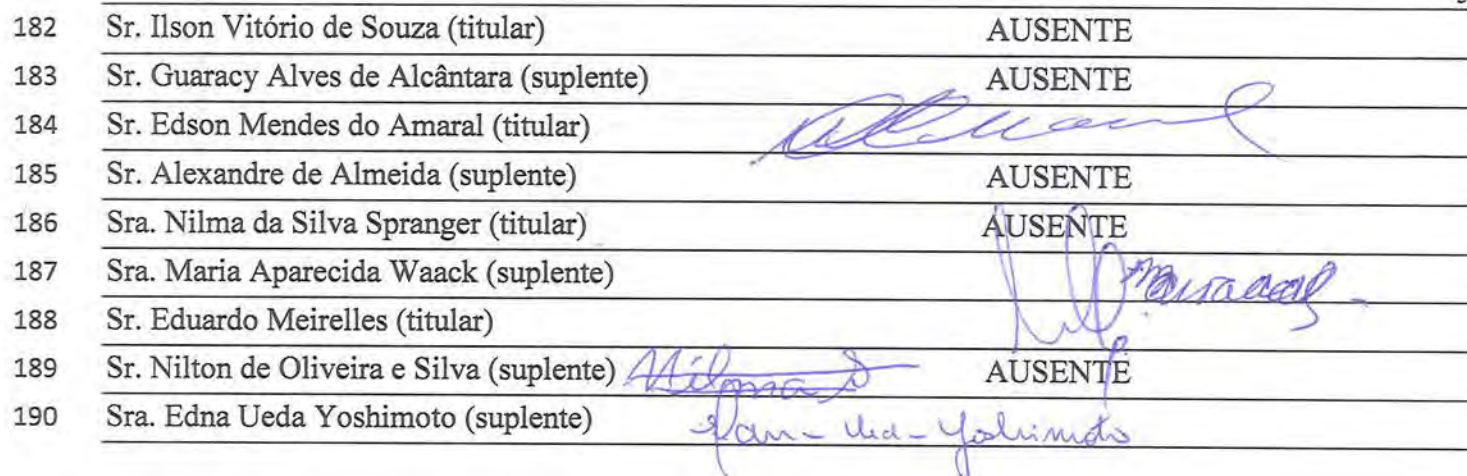 182 Sr. Ilson Vitório de Souza (titular) AUSENTE
183 Sr. Guaracy Alves de Alcântara (suplente) AUSENTE
184 Sr. Edson Mendes do Amaral (titular)
185 Sr. Alexandre de Almeida (suplente) AUSENTE
186 Sra. Nilma da Silva Spranger (titular) AUSENTE
187 Sra. Maria Aparecida Waack (suplente)
188 Sr. Eduardo Meirelles (titular)
189 Sr. Nilton de Oliveira e Silva (suplente) AUSENTE
190 Sra. Edna Ueda Yoshimoto (suplente) Yoshimoto